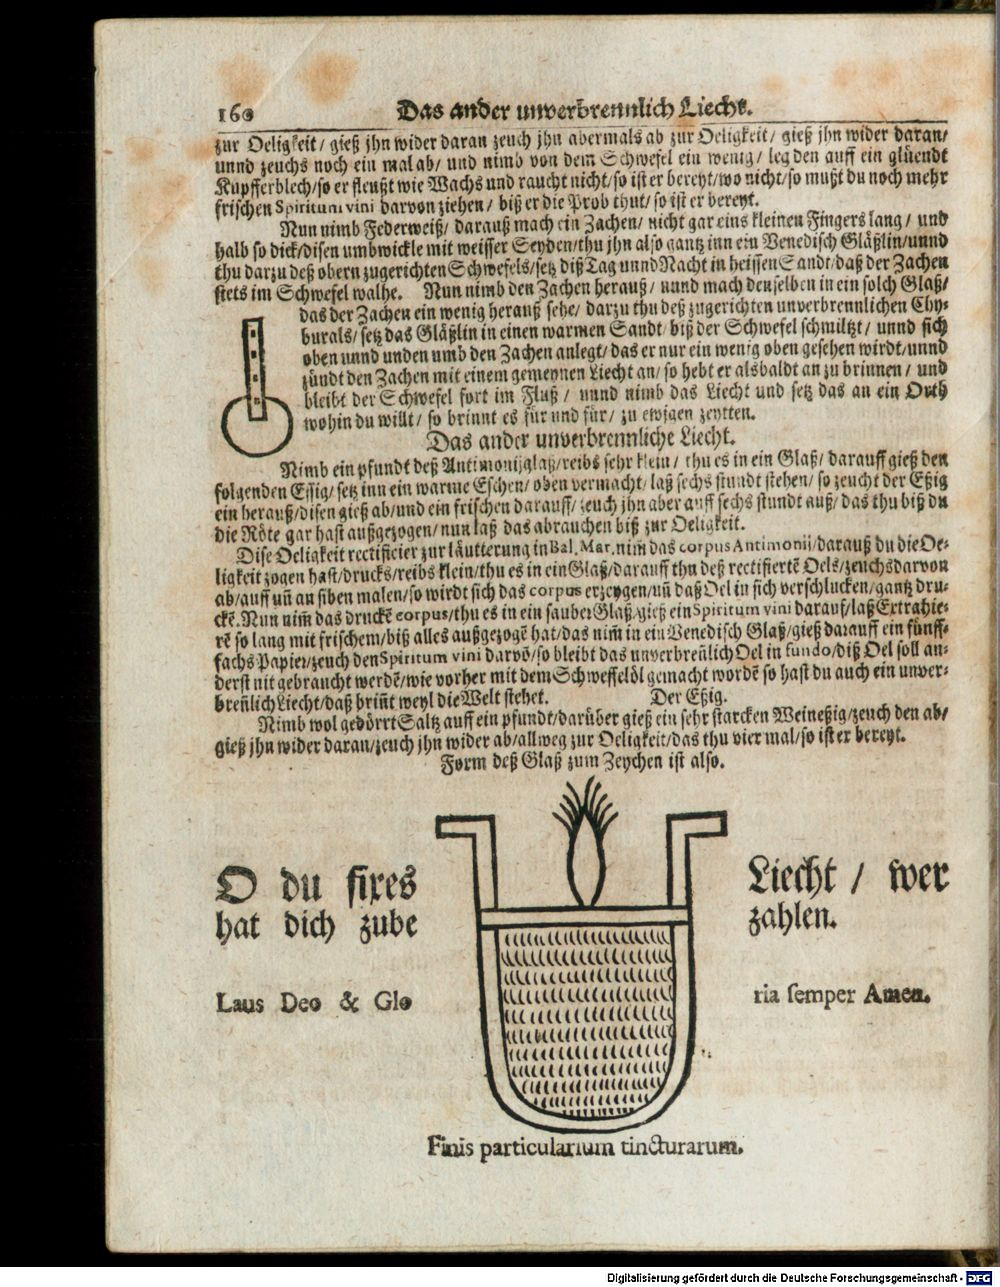 160 Das ander unverbrennlich Liecht.
zur Oeligkeit/ gieß jhn wider daran zeuch jhn abermals ab zur Oeligkeit/ gieß jhn wider daran/
unnd zeuchs noch ein mal ab/ und nimb von dem Schwefel ein wenig/ leg den auff ein glüendt
Kupfferblech/so er fleußt wie Wachs und raucht nicht/so ist er bereyt/wo nicht/so mußt du noch mehr
frischen Spiritum vini darvon ziehen/ biß er die Prob thut/so ist er bereyt.
Nun nimb Federweiß/ darauß mach ein Zachen/ nicht gar eins kleinen Fingers lang/ und
halb so dick/disen umbwickle mit weisser Seyden/thu jhn also gantz inn ein Venedisch Gläßlin/unnd
thu darzu deß obern zugerichten Schwefels/setz diß Tag unnd Nacht in heissen Sandt/daß der Zachen
stets im Schwefel walhe. Nun nimb den Zachen herauß/ unnd mach denselben in ein solch Glaß/
das der Zachen ein wenig herauß sehe/ darzu thu deß zugerichten unverbrennlichen Chy-
burals/ setz das Gläßlin in einen warmen Sandt/ biß der Schwefel schmiltzt/ unnd sich
oben unnd unden umb den Zachen anlegt/das er nur ein wenig oben gesehen wirdt/unnd
zündt den Zachen mit einem gemeynen Liecht an/ so hebt er alsbaldt an zu brinnen/ und
bleibt der Schwefel fort im Fluß/ unnd nimb das Liecht und setz das an ein Orth
wohin du willt/ so brinnt es für und für/ zu ewigen zeytten.
Das ander unverbrennliche Liecht.
Nimb ein pfundt deß Antimonijglaß/reibs sehr klein/ thu es in ein Glaß/ darauff gieß den
folgenden Essig/ setz inn ein warme Eschen/ oben vermacht/ laß sechs stundt stehen/ so zeucht der Eßig
ein herauß/disen gieß ab/und ein frischen darauff/ zeuch jhn aber auff sechs stundt auß/ das thu biß du
die Röte gar hast außgezogen/ nun laß das abrauchen biß zur Oeligkeit.
Dise Oeligkeit rectificier zur läutterung in Bal. Mar. nim̃ das corpus Antimonii/darauß du die Oe-
ligkeit zogen hast/drucks/reibs klein/thu es in ein Glaß/darauff thu deß rectificiertẽ Oels/zeuchs darvon
ab/auff uñ an siben malen/so wirdt sich das corpus erzeygen/uñ daß Oel in sich verschlucken/gantz dru-
ckẽ. Nun nim̃ das druckẽ corpus/thu es in ein sauber Glaß/gieß ein Spiritum vini darauf/laß Extrahie-
rẽ so lang mit frischem/biß alles außgezogẽ hat/das nim̃ in ein Venedisch Glaß/gieß darauff ein fünff-
fachs Papier/zeuch den Spiritum vini darvõ/so bleibt das unverbreñlich Oel in fundo/diß Oel soll an-
derst nit gebraucht werdẽ/wie vorher mit dem Schweffelöl gemacht wordẽ so hast du auch ein unver-
breñlich Liecht/daß briñt weyl die Welt stehet. Der Eßig.
Nimb wol gedörrt Saltz auff ein pfundt/darüber gieß ein sehr starcken Weineßig/zeuch den ab/
gieß jhn wider daran/zeuch jhn wider ab/allweg zur Oeligkeit/das thu vier mal/so ist er bereyt.
Form deß Glaß zum Zeychen ist also.
O du fixes Liecht / wer
hat dich zube zahlen.
Laus Deo & Glo ria semper Amen.
Finis particularium tincturarum.
Digitalisierung gefördert durch die Deutsche Forschungsgemeinschaft - DFG